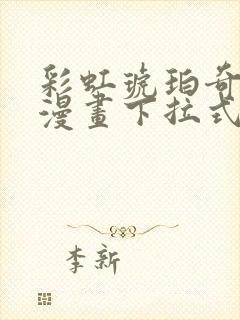 彩虹琥珀奇
漫畫下拉式
李新